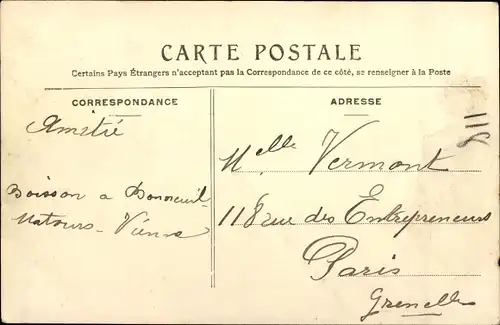 CARTE POSTALE
Certains Pays Étrangers n'acceptant pas la Correspondance de ce côté, se renseigner à la Poste
CORRESPONDANCE
ADRESSE
Amitié
Boisson a Bonneuil-
Matours - Vienne
Melle Vermont
118 rue des Entrepreneurs
Paris
Grenelle